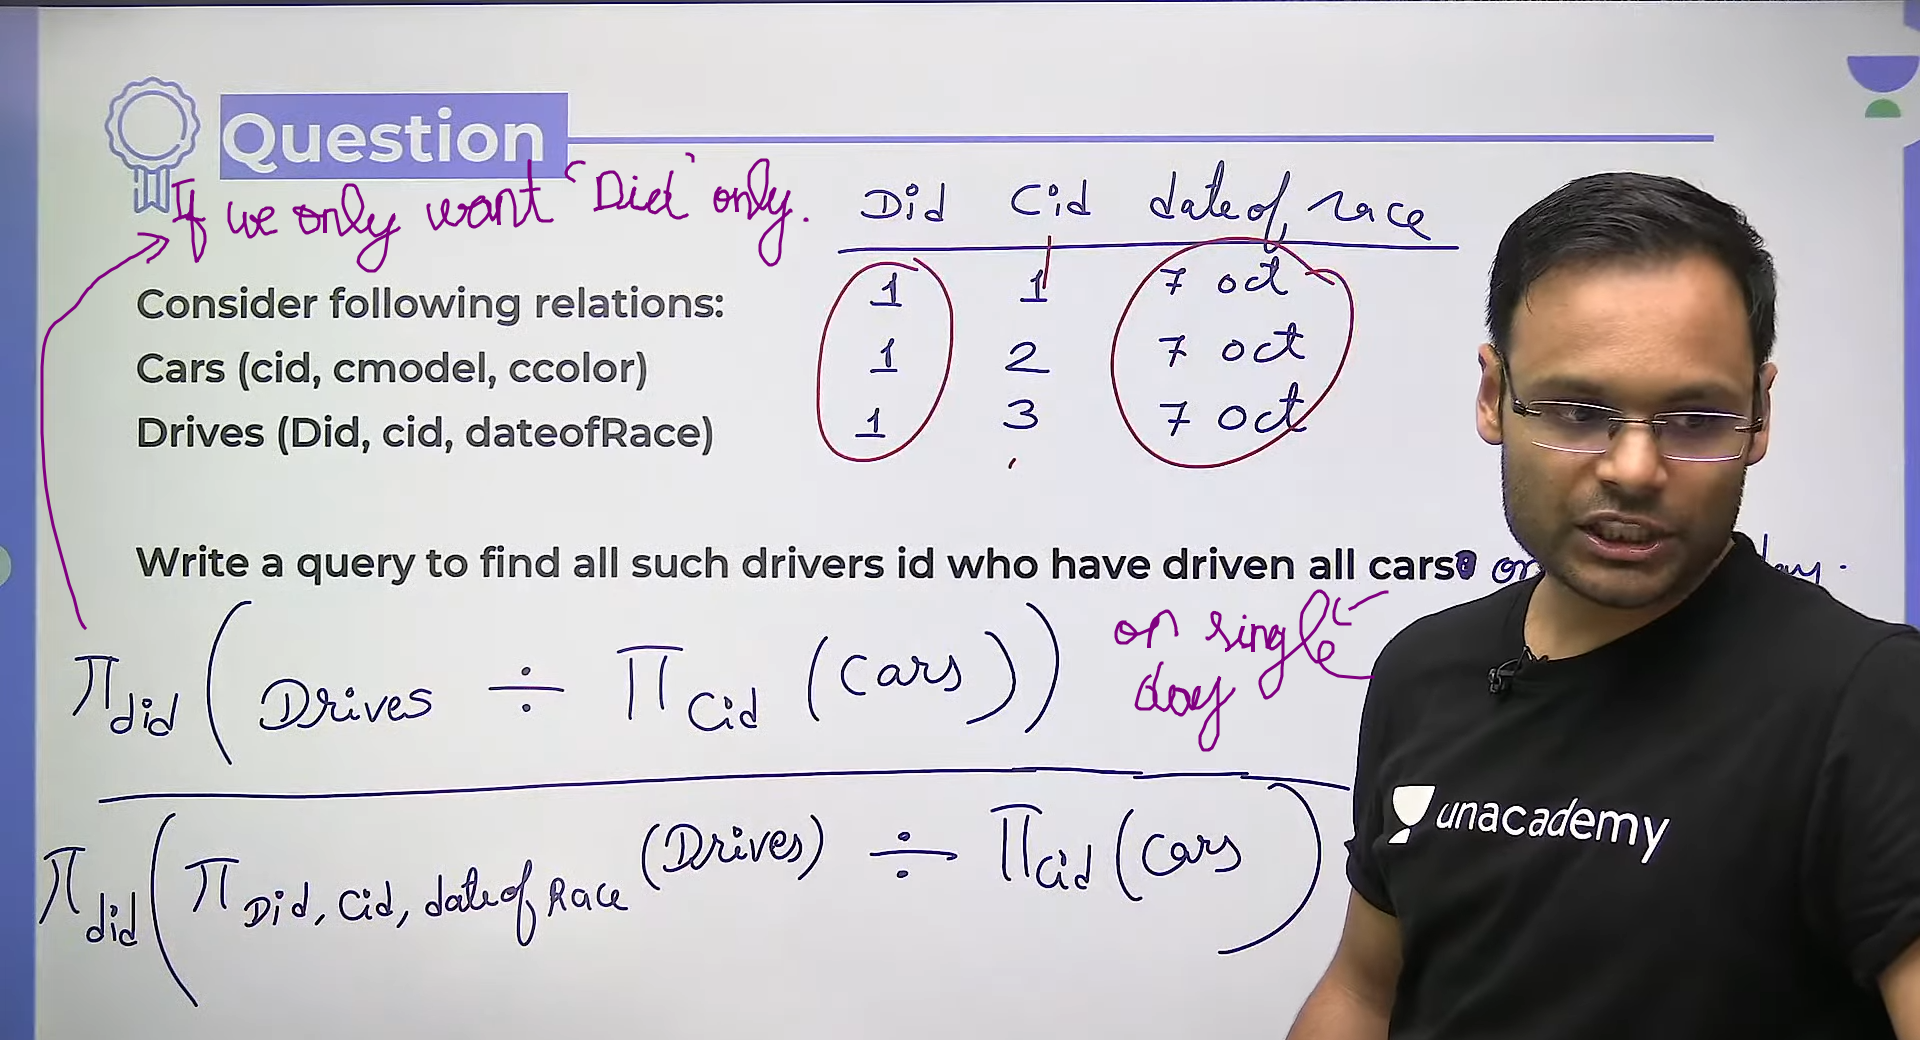 Question
If we only want 'Did' only.
Did Cid date of race
1 1 7 oct
1 2 7 oct
1 3 7 oct
Consider following relations:
Cars (cid, cmodel, ccolor)
Drives (Did, cid, dateofRace)
Write a query to find all such drivers id who have driven all cars
on single
day
π did (Drives ÷ π Cid (Cars))
π did (π Did, Cid, date of Race (Drives) ÷ π Cid (Cars)
unacademy